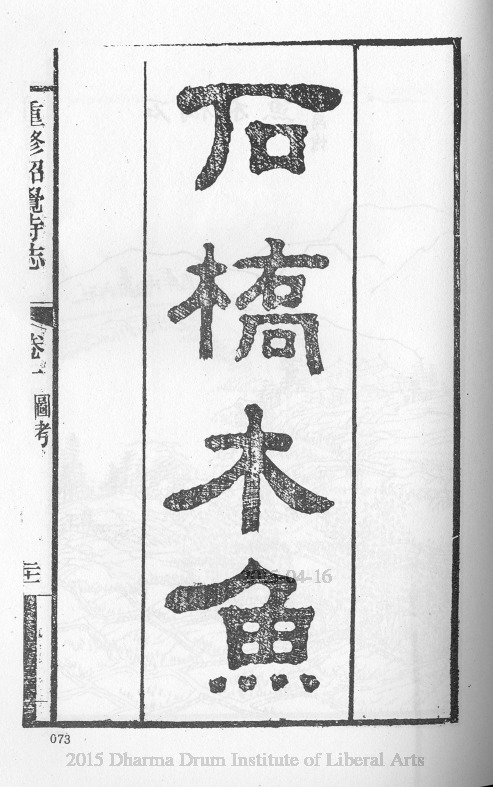 石橋木魚
重修昭覺寺志
卷一
圖考
073
2015 Dharma Drum Institute of Liberal Arts